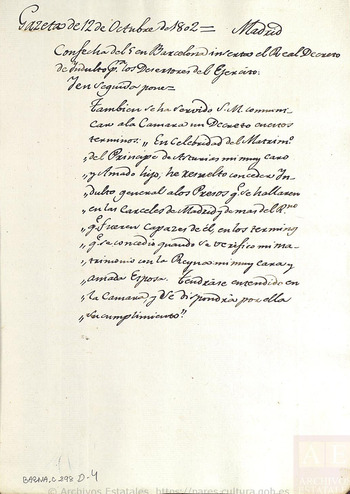 Gazeta de 12 de Octubre de 1802= Madrid
Con fecha del 5 en Barcelona inserta el Real Decreto
de indulto pª. los Desertores del Egercito:
Y en seguida pone=
Tambien se ha servido S.M. comuni-
car a la Camara un Decreto en estos
terminos. „ En celebridad del Matrimº
„ del Principe de Asturias mi muy caro
„ y Amado hijo, he resuelto conceder In-
„ dulto general a los Presos qe. se hallaren
„ en las Carceles de Madrid y demas del Rno
„ qe. fueren capazes de él, en los terminos
„ qe. se concedio quando se verifico mi ma-
„ trimonio con la Reyna mi muy cara y
„ amada Esposa. Tendrase entendido en
„ la Camara, y se dispondra por ella
„ su cumplimiento."
BARNA, C 298 D-4
© Archivos Estatales, https://pares.cultura.gob.es
AE
ARCHIVOS
ESTATALES